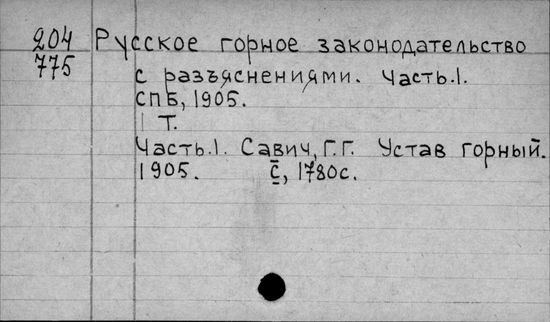 204 Русское горное законодательство
775 с разъяснениями. Часть.1.
СПБ, 1905.
1 Т.
Часть.1. Савич, Г.Г. Устав горный.
1905. С, 1780с.